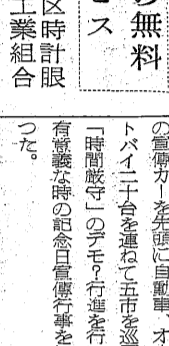 無料
ス
区時計眼
工業組合
の宣傳カーを先頭に自動車、オ
トバイ二十台を連ねて五市を巡
「時間厳守」のデモ?行進を行
有意義な時の記念日宣傳行事を
つた。